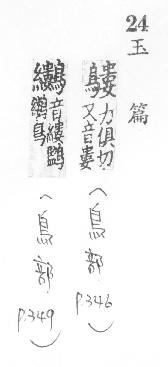 24
玉篇
鷜力俱切
又音婁
(鳥部 p.346)
音縷
(鳥部 p.349)